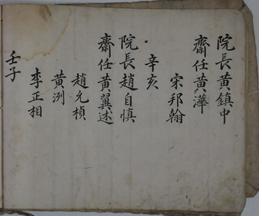 院長黃鎮中
齋任黃瀁
宋邦翰
辛亥
院長趙自愼
齋任黃龔述
趙允楨
黃洌
李正相
壬子